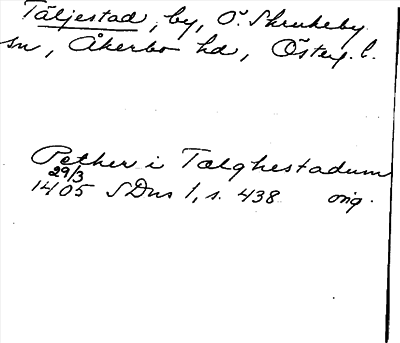 Täljestad, by, Ö. Skrukeby
sn, Åkerbo hd, Österg. l.
Pether i Tælghestadum
29/3
1405 SDns 1, s. 438 orig.